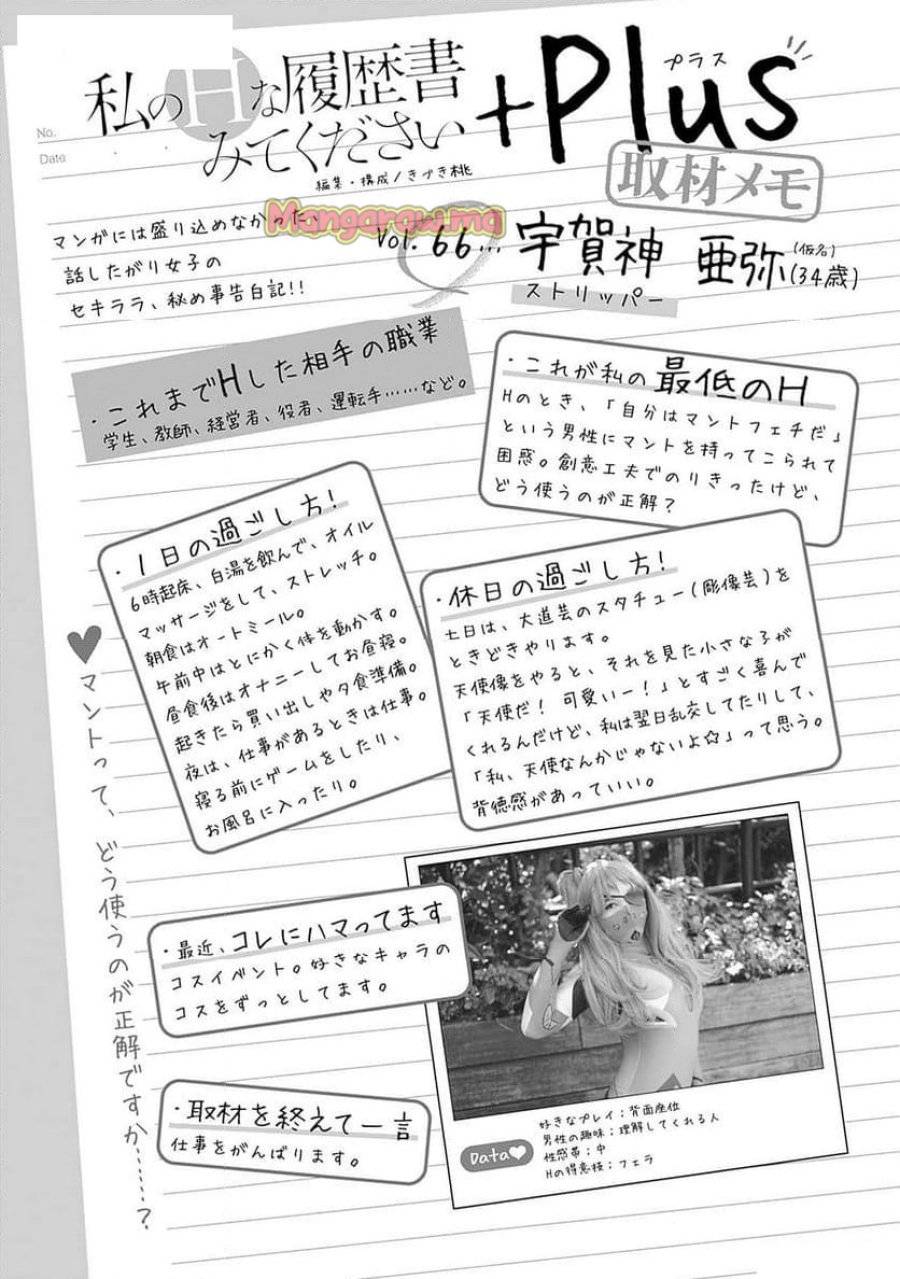 No.
Date
私のHな履歴書
みてください
+Plus
プラス
編集・構成/きづき桃
取材メモ
Mangaraw.ma
マンガには盛り込めなかった、
話したがり女子の
セキララ、秘め事告白記!!
Vol.66…宇賀神 亜弥(仮名)(34歳)
ストリッパー
・これまでHした相手の職業
学生、教師、経営者、役者、運転手……など。
・これが私の最低のH
Hのとき、「自分はマントフェチだ」
という男性にマントを持ってこられて
困惑。創意工夫でのりきったけど、
どう使うのが正解?
・1日の過ごし方!
6時起床、白湯を飲んで、オイル
マッサージをして、ストレッチ。
朝食はオートミール。
午前中はとにかく体を動かす。
昼食後はオナニーしてお昼寝。
起きたら買い出しや夕食準備。
夜は、仕事があるときは仕事。
寝る前にゲームをしたり、
お風呂に入ったり。
・休日の過ごし方!
土日は、大道芸のスタチュー(彫像芸)を
ときどきやります。
天使像をやると、それを見た小さな子が
「天使だ! 可愛いー!」とすごく喜んで
くれるんだけど、私は翌日乱交してたりして、
「私、天使なんかじゃないよ☆」って思う。
背徳感があっていい。
♥マントって、どう使うのが正解ですか……?
・最近、コレにハマってます
コスイベント。好きなキャラの
コスをずっとしてます。
・取材を終えて一言
仕事をがんばります。
Data♥
好きなプレイ:背面座位
男性の趣味:理解してくれる人
性感帯:中
Hの得意技:フェラ